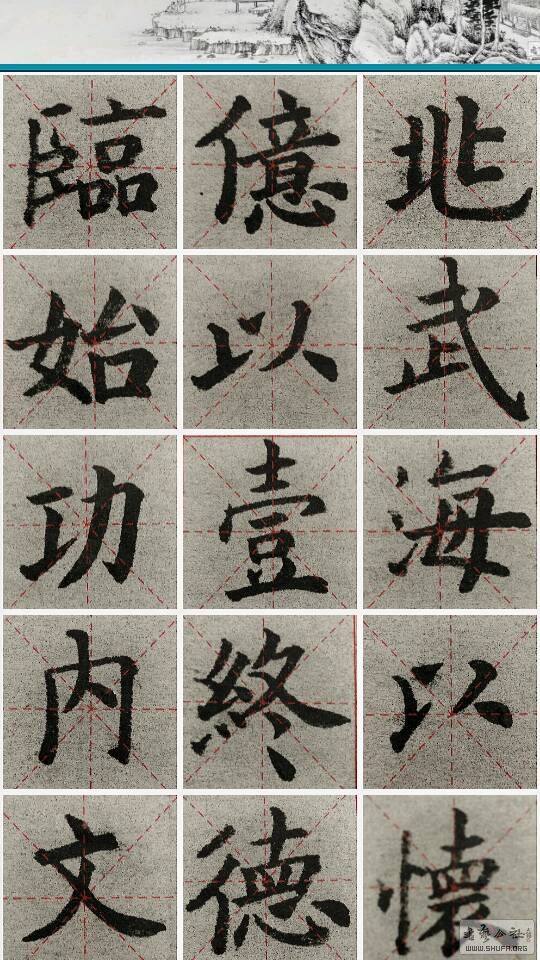 臨億兆
始以武
功壹海
内終以
文德懷
書藝公社
WWW.SHUFA.ORG